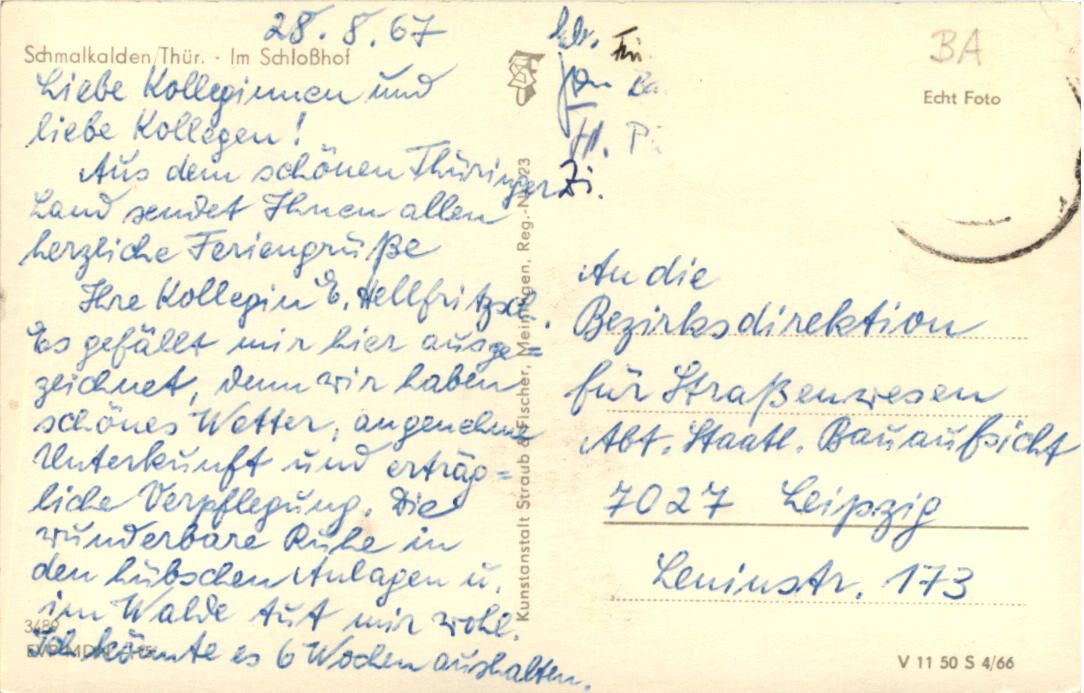 28.8.67
Schmalkalden/Thür. - Im Schloßhof
Liebe Kolleginnen und
liebe Kollegen!
Aus dem schönen Thüringer
Land sendet Ihnen allen
herzliche Feriengrüße
Ihre Kollegin E. Hellfritzsch.
Es gefällt mir hier ausge=
zeichnet, denn wir haben
schönes Wetter, angenehme
Unterkunft und erträg=
liche Verpflegung. Die
wunderbare Ruhe in
den hübschen Anlagen u.
im Walde tut mir wohl.
Ich könnte es 6 Wochen aushalten.
3489
Kunstanstalt Straub & Fischer, Meiningen, Reg.-Nr. 023
Zi.
BA
Echt Foto
An die
Bezirksdirektion
für Straßenwesen
Abt. Staatl. Bauaufsicht
7027 Leipzig
Leninstr. 173
V 11 50 S 4/66